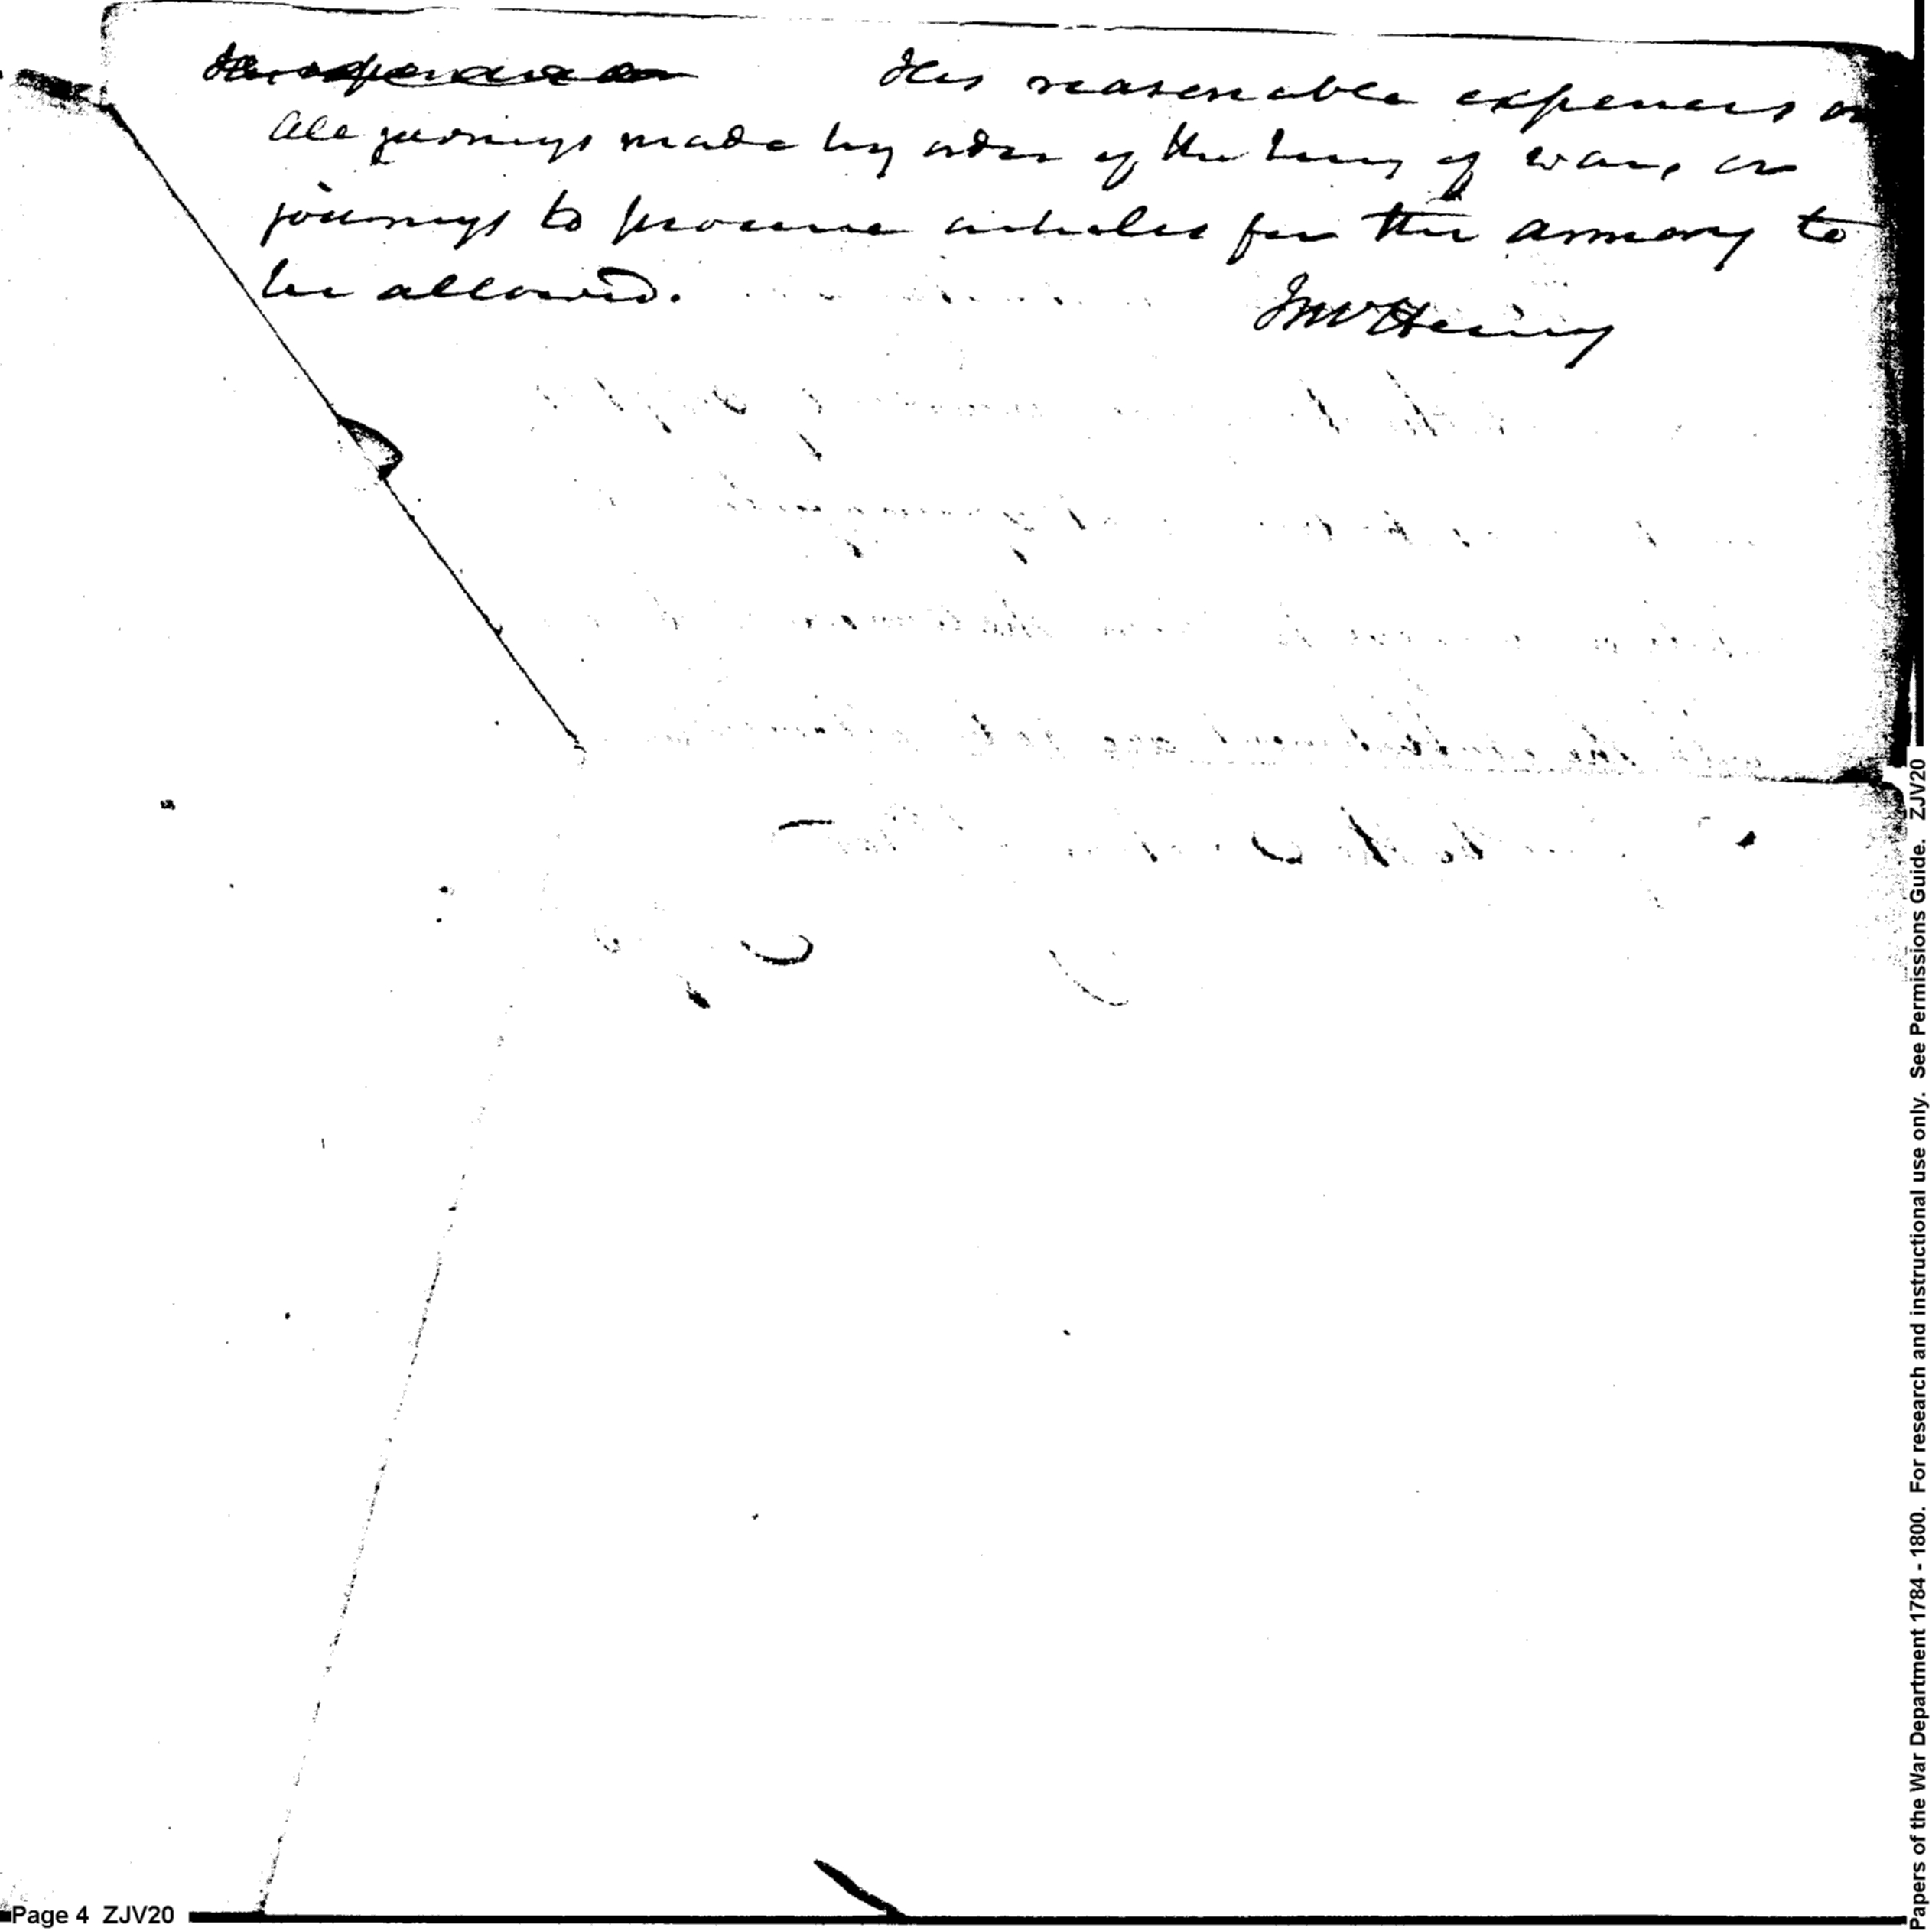 His reasonable expenses on
all journeys made by order of the Secy of war, or
journeys to procure articles for the armory to
be allowed.
JMcHenry
Page 4 ZJV20
Papers of the War Department 1784 - 1800. For research and instructional use only. See Permissions Guide. ZJV20